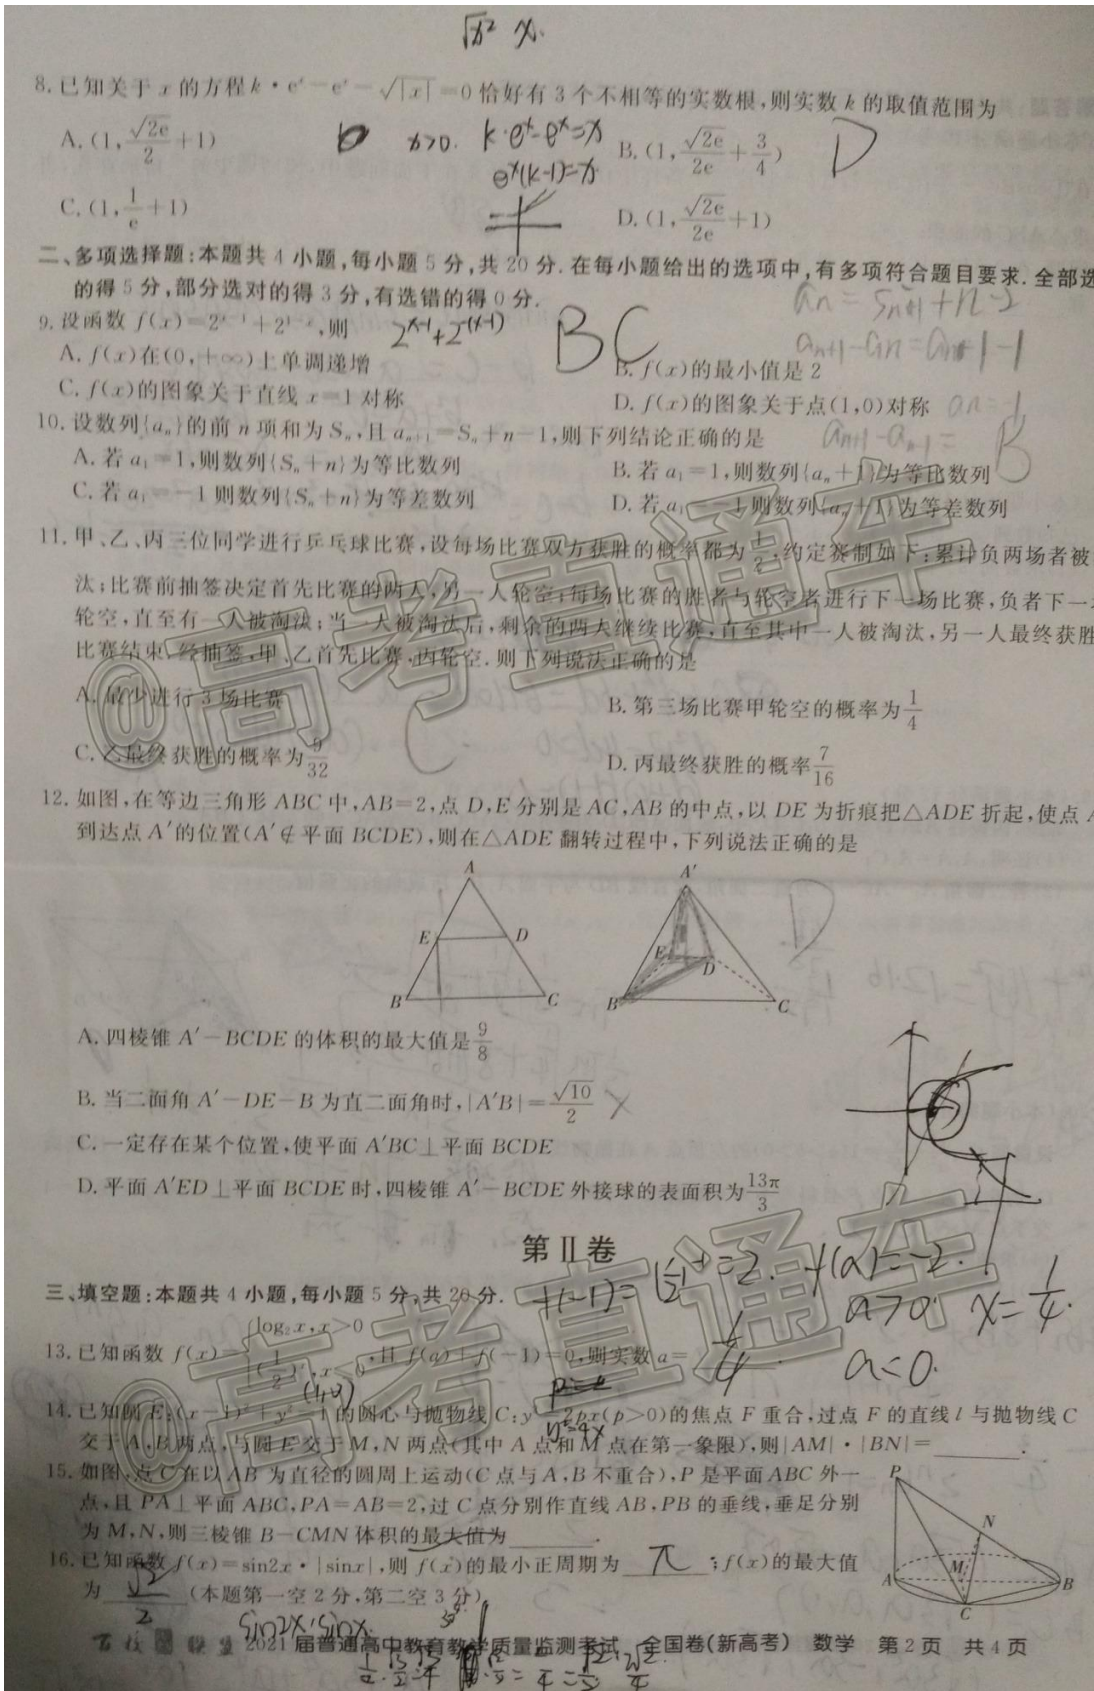 8.已知关于 x 的方程 k·eˣ-eˣ-√|x|=0 恰好有 3 个不相等的实数根,则实数 k 的取值范围为
A.(1,√2e/2+1)
b x>0. k·eˣ-eˣ=x
B.(1,√2e/2e+3/4)
D
eˣ(k-1)=x
C.(1,1/e+1)
D.(1,√2e/2e+1)
二、多项选择题:本题共 4 小题,每小题 5 分,共 20 分.在每小题给出的选项中,有多项符合题目要求.全部选
的得 5 分,部分选对的得 3 分,有选错的得 0 分.
9.设函数 f(x)=2ˣ⁻¹+2¹⁻ˣ,则
2ˣ⁻¹+2⁻⁽ˣ⁻¹⁾
BC
A.f(x)在(0,+∞)上单调递增
B.f(x)的最小值是 2
C.f(x)的图象关于直线 x=1 对称
D.f(x)的图象关于点(1,0)对称
10.设数列{aₙ}的前 n 项和为 Sₙ,且 aₙ₊₁=Sₙ+n-1,则下列结论正确的是
B
A.若 a₁=1,则数列{Sₙ+n}为等比数列
B.若 a₁=1,则数列{aₙ+1}为等比数列
C.若 a₁=-1 则数列{Sₙ+n}为等差数列
D.若 a₁=-1 则数列{aₙ+1}为等差数列
11.甲、乙、丙三位同学进行乒乓球比赛,设每场比赛双方获胜的概率都为1/2,约定赛制如下:累计负两场者被
汰;比赛前抽签决定首先比赛的两人,另一人轮空;每场比赛的胜者与轮空者进行下一场比赛,负者下一
轮空,直至有一人被淘汰;当一人被淘汰后,剩余的两人继续比赛,直至其中一人被淘汰,另一人最终获胜
比赛结束.经抽签,甲、乙首先比赛,丙轮空.则下列说法正确的是
A.最少进行 3 场比赛
B.第三场比赛甲轮空的概率为1/4
C.乙最终获胜的概率为9/32
C
D.丙最终获胜的概率7/16
12.如图,在等边三角形 ABC 中,AB=2,点 D,E 分别是 AC,AB 的中点,以 DE 为折痕把△ADE 折起,使点 A
到达点 A′的位置(A′∉平面 BCDE),则在△ADE 翻转过程中,下列说法正确的是
A
E D
B C
A′
E D
B C
D
A.四棱锥 A′-BCDE 的体积的最大值是9/8
B.当二面角 A′-DE-B 为直二面角时,|A′B|=√10/2
C.一定存在某个位置,使平面 A′BC⊥平面 BCDE
D.平面 A′ED⊥平面 BCDE 时,四棱锥 A′-BCDE 外接球的表面积为13π/3
第Ⅱ卷
f(a)=-2.
三、填空题:本题共 4 小题,每小题 5 分,共 20 分.
a>0. x=1/4.
13.已知函数 f(x)={log₂x,x>0 (1/2)ˣ,x≤0,且 f(a)+f(-1)=0,则实数 a= 1/4 .
a=0.
14.已知圆 E:(x-1)²+y²=1 的圆心与抛物线 C:y²=2px(p>0)的焦点 F 重合,过点 F 的直线 l 与抛物线 C
y²=4x
交于 A,B 两点,与圆 E 交于 M,N 两点(其中 A 点和 M 点在第一象限),则|AM|·|BN|= .
15.如图,点 C 在以 AB 为直径的圆周上运动(C 点与 A,B 不重合),P 是平面 ABC 外一
点,且 PA⊥平面 ABC,PA=AB=2,过 C 点分别作直线 AB,PB 的垂线,垂足分别
为 M,N,则三棱锥 B-CMN 体积的最大值为 .
P
N
M
A B
C
16.已知函数 f(x)=sin2x·|sinx|,则 f(x)的最小正周期为 π ;f(x)的最大值
为 √2/2 (本题第一空 2 分,第二空 3 分)
sin2x·sinx.
2021 届普通高中教育教学质量监测考试 全国卷(新高考) 数学 第 2 页 共 4 页
@高考直通车
@高考直通车